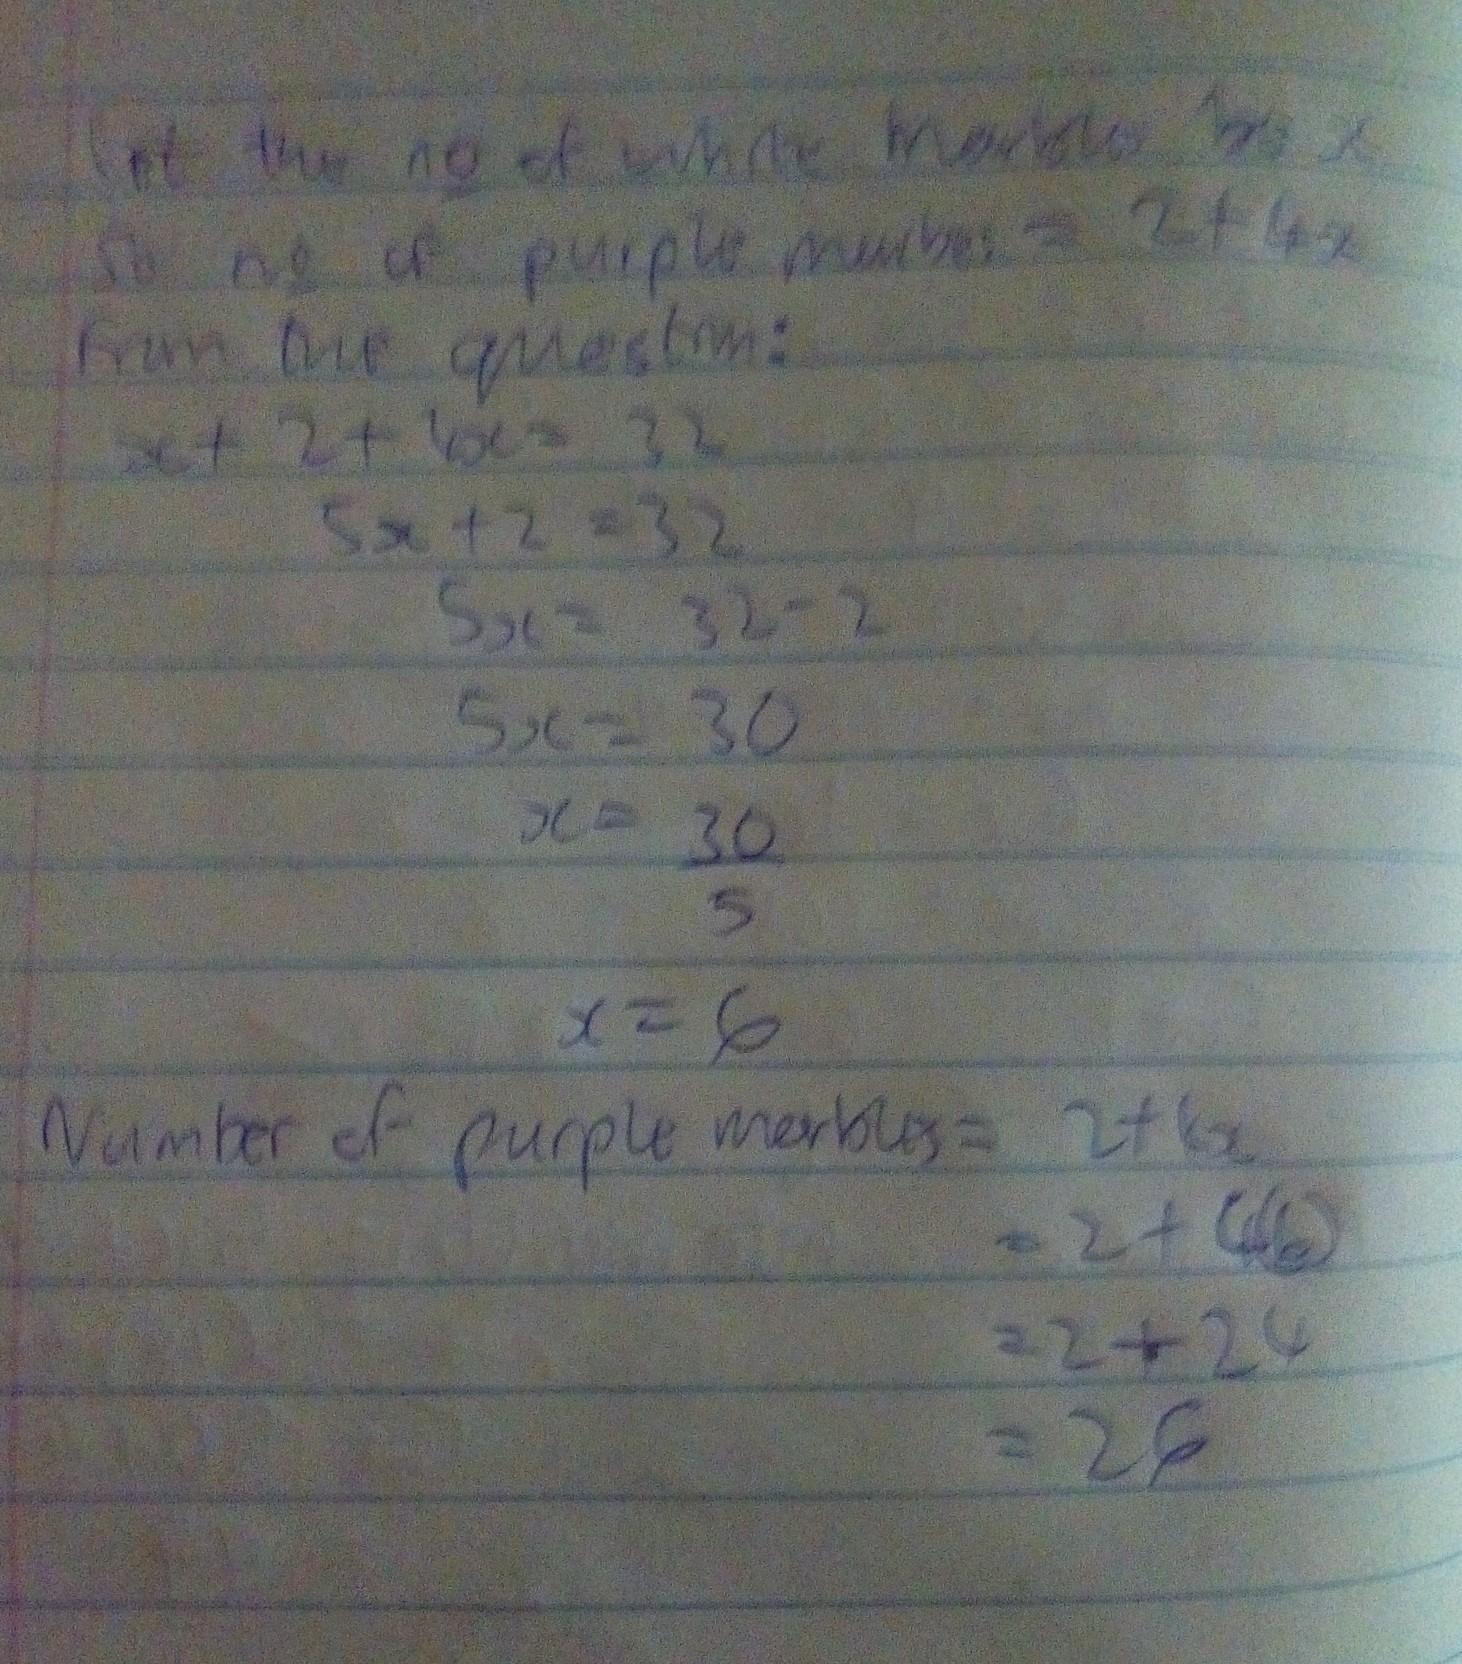 let the no of white marbles be x
So no of purple marbles = 2+4x
From the question:
x+ 2+ 4x= 32
5x +2 =32
5x= 32-2
5x= 30
x= 30
5
x= 6
Number of purple marbles= 2+4x
= 2+ (4(6)
=2+24
= 26